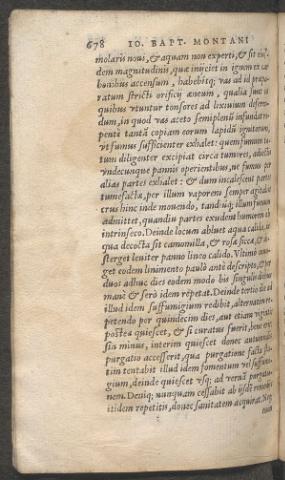 678 IO. BAPT. MONTANI
molaris noui, & aquam non experti, & sit eiusdem
dem magnitudinis, quæ inijciet in ignem ex car
bonibus accensum, habebitq; vas ad id præpa-
ratum stricti orificij æneum, qualia sunt
quibus vtuntur tonsores ad lixiuium deferen
dum, in quod vas aceto semiplenũ infundat re
pentè tantã copiam eorum lapidũ ignitorum,
vt fumus sufficienter exhalet: quem fumum
tum diligenter excipiat circa tumores, adiectis
vndecunque pannis operientibus, ne fumus per
alias partes exhalet: & dum incalescent partes
tumefactæ, per illum vaporem semper agitabit
crus hinc inde mouendo, tandiuq; illum fumum
admittet, quandiu partes exudent humorem ab
intrinseco. Deinde locum abluet aqua calida, in
qua decocta sit camomilla, & rosa sicca, &
sterget leuiter panno lineo calido. Vltimò
get eodem linimento paulò antè descripto, & per
duos adhuc dies eodem modo bis singulis diebus
manè & serò idem repetat. Deinde tertio die ad
illud idem suffumigium redibit, alternatim re-
petendo per quindecim dies, aut etiam viginti
postea quiescet, & si curatus fuerit, bene
sin minus, interim quiescet donec autumnalis
purgatio accesserit, qua purgatione facta
tim tentabit illud idem fomentum vel suffumi-
gium, deinde quiescet vsq; ad vernã purgatio-
nem. Deniq; nunquam cessabit ab ijsdẽ remedijs
itidem repetitis, donec sanitatem acquirat.